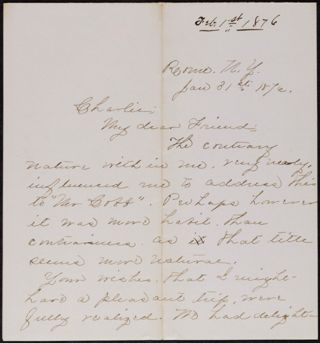 Feb. 1st 1876
Rome. N.Y.
Jan 31st 187
Charlie;
My dear Friend;
The contrary
nature with in me, very nearly
influenced me to address this
to "Mr Cobb". Perhaps however
it was more habit, than
contrariness as that title
seems more natural.
Your wishes, that I might
have a pleasant trip, were
fully realized. We had delight-